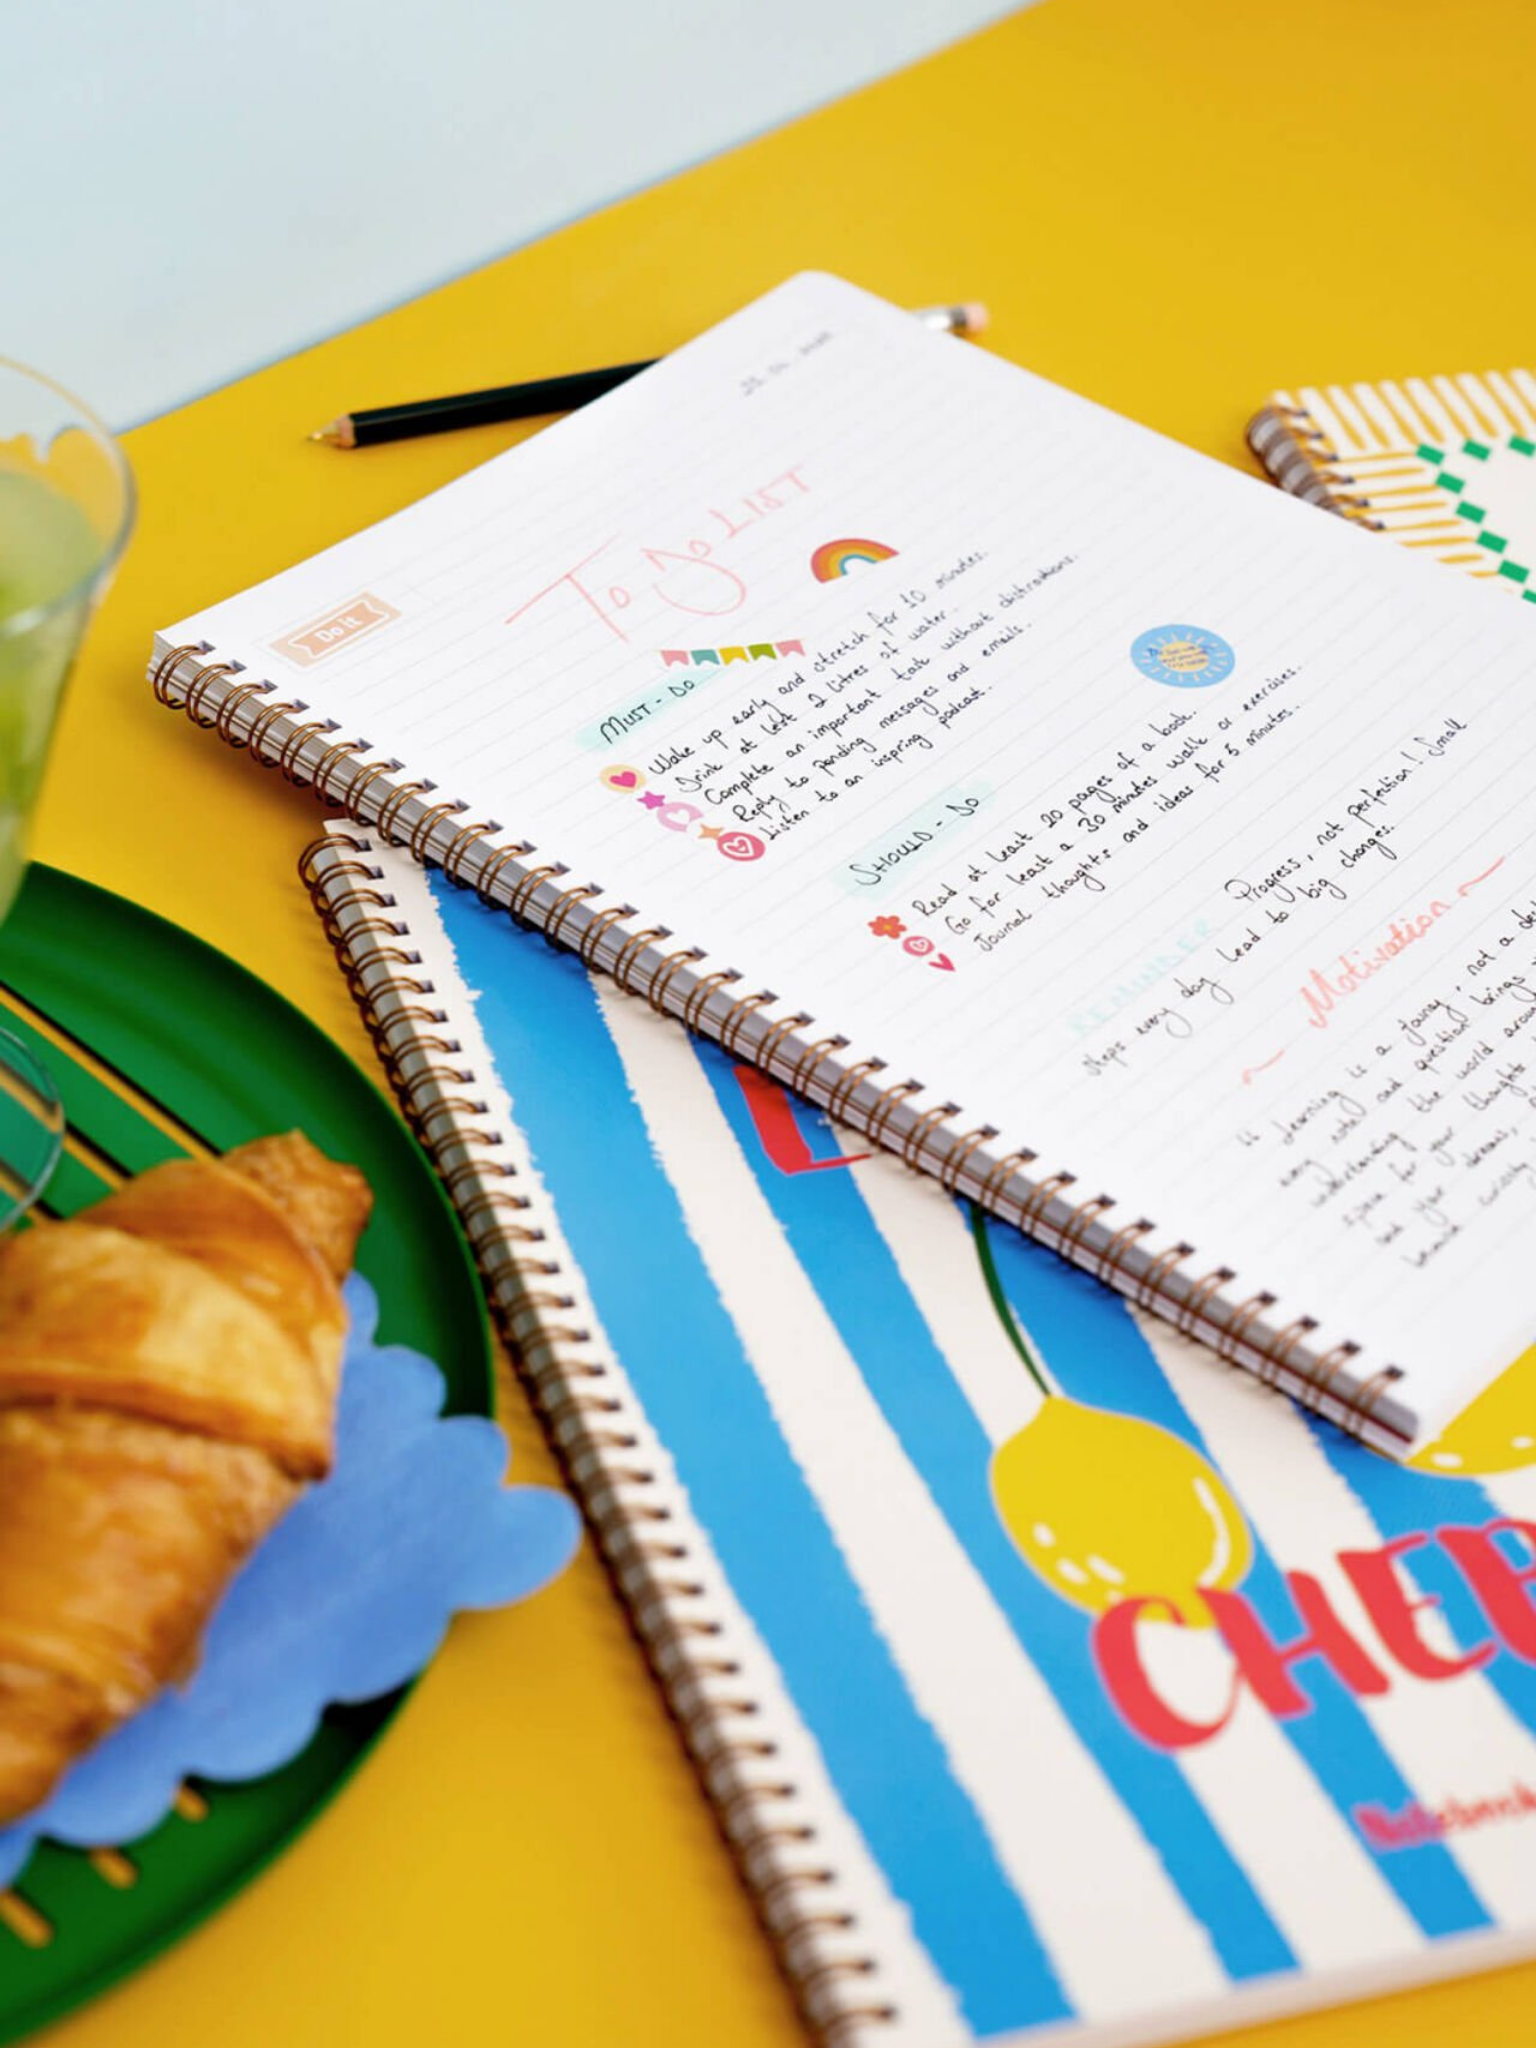 Do it
To Do LIST
MUST - DO
Wake up early and stretch for 10 minutes.
Drink at lest 2 litres of water.
Complete an important task without distractions.
Reply to pending messages and emails.
Listen to an inspiring podcast.
SHOULD - DO
Read at least 20 pages of a book.
Go for least a 30 minutes walk or exercises.
Journal thoughts and ideas for 5 minutes.
REMINDER Progress, not perfection! Small
steps every day lead to big changes.
~ Motivation ~
" Learning is a journey, not a
every and question brings
understanding the world
space for your thoughts
your dreams,
curiosity
CHE
Notebook